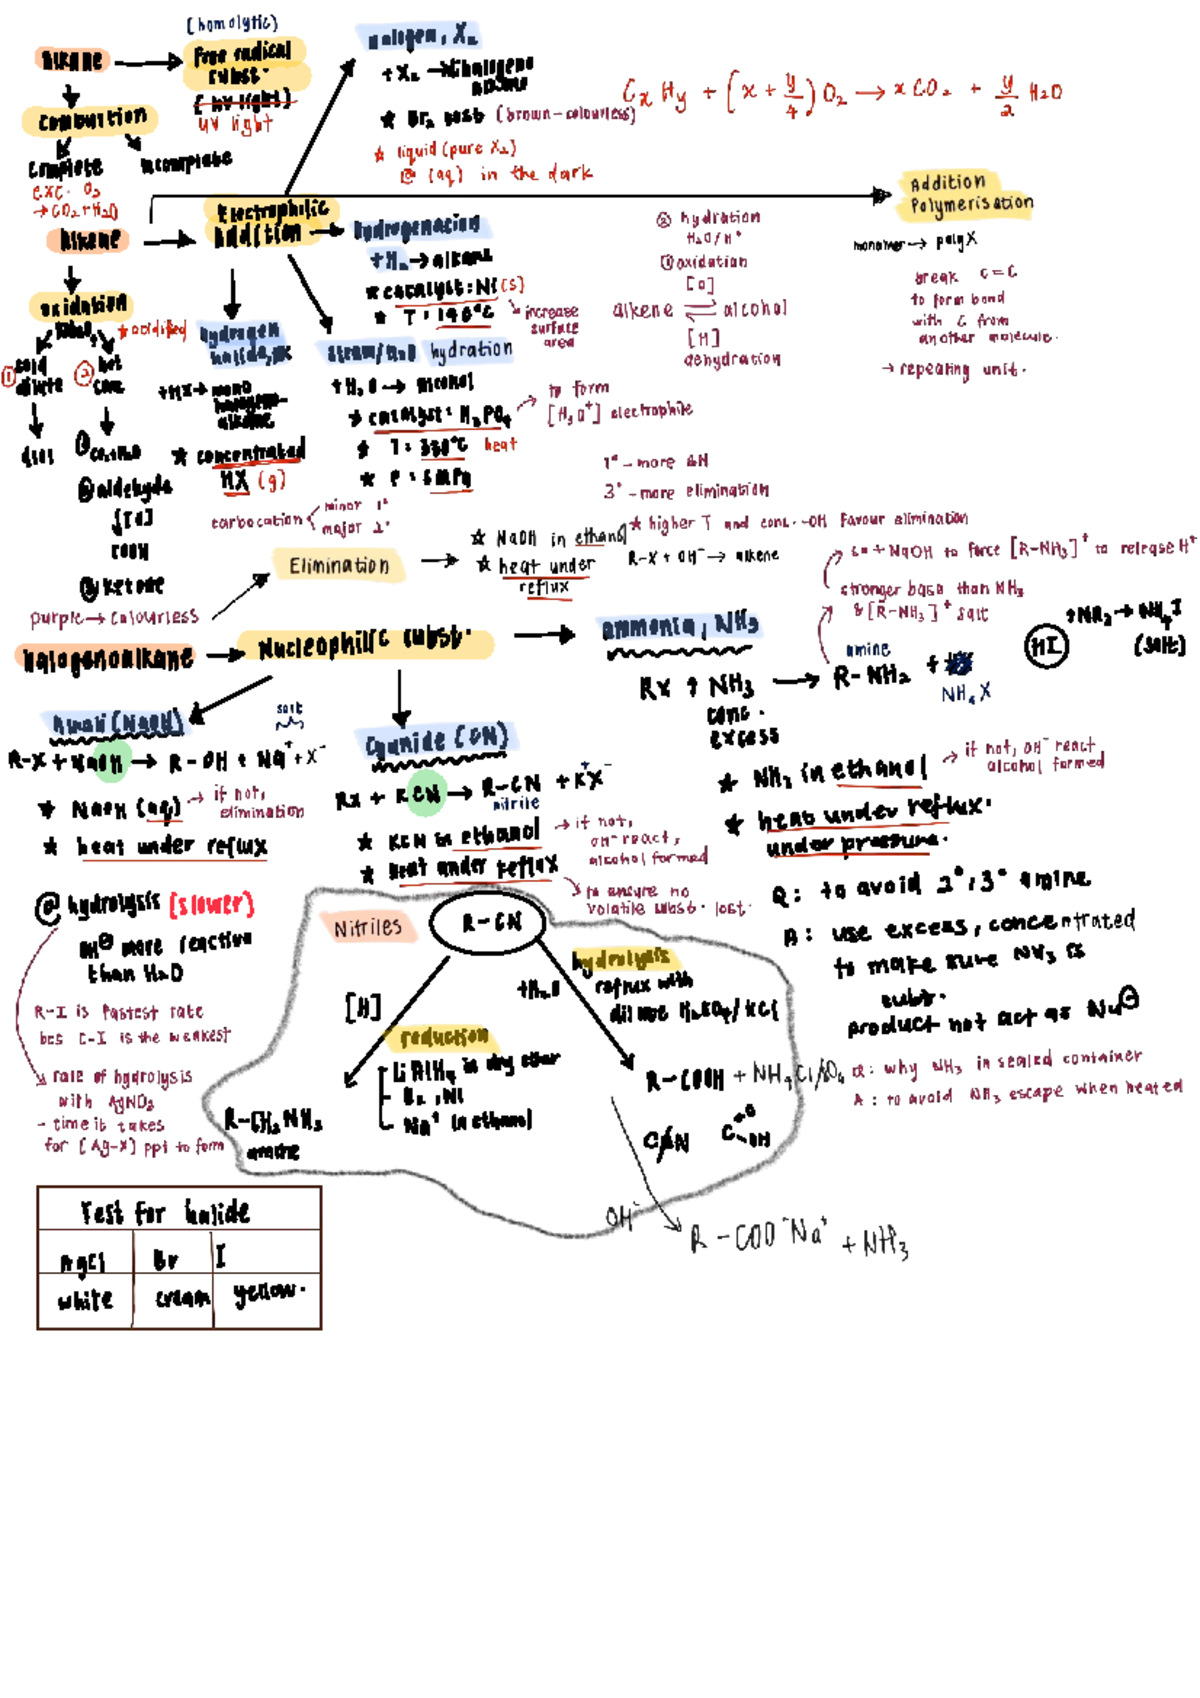 (homolytic)
alkane
Free radical
subst.
(uv light)
UV light
Combustion
complete
incomplete
exc. O₂
→ CO₂ + H₂O
Halogen, X₂
+ X₂ →
★ Br₂ test (brown-colourless)
★ liquid (pure X₂)
@ (aq) in the dark
CxHy + (x + y/4) O₂ → x CO₂ + y/2 H₂O
Addition
Polymerisation
monomer → poly X
break C=C
to form bond
with C from
another molecule.
→ repeating unit.
alkene
Electrophilic
addition
hydrogenation
+ H₂ → alkane
★ catalyst: Ni (s)
★ T: 140°C
increase
surface
area
② hydration
H₂O/H⁺
① oxidation
[O]
alkene ⇌ alcohol
[H]
dehydration
oxidation
★ acidified
① cold
dilute
② hot
conc
diol
① CO₂ + H₂O
② aldehyde
↓ [O]
COOH
③ ketone
purple → colourless
hydrogen
halide, HX
+ HX → mono
halogeno-
alkane
★ concentrated
HX (g)
carbocation < minor 1°
major 2°
steam/H₂O hydration
+ H₂O → alcohol
★ catalyst: H₃PO₄
★ T: 330°C heat
★ P: 6MPa
to form
[H₃O⁺] electrophile
1° - more SN
3° - more elimination
★ higher T and conc. -OH favour elimination
Elimination
★ NaOH in ethanol
★ heat under
reflux
R-X + OH⁻ → alkene
Halogenoalkane
Nucleophilic subst.
ammonia, NH₃
NaOH to force [R-NH₃]⁺ to release H⁺
stronger base than NH₃
& [R-NH₃]⁺ salt
amine
RX + NH₃ → R-NH₂ +
NH₄X
conc.
excess
HI
+ NH₃ → NH₄I
(salt)
★ NH₃ in ethanol
→ if not, OH⁻ react
alcohol formed
★ heat under reflux.
under pressure.
Q: to avoid 2°, 3° amine
A: use excess, concentrated
to make sure NH₃ is
subt.
product not act as Nu⊖
Q: why NH₃ in sealed container
A: to avoid NH₃ escape when heated
Alkali (NaOH)
salt
R-X + NaOH → R-OH + Na⁺ + X⁻
★ NaOH (aq) → if not,
elimination
★ heat under reflux
@ hydrolysis (slower)
OH⊖ more reactive
than H₂O
R-I is fastest rate
bcs C-I is the weakest
rate of hydrolysis
with AgNO₃
- time it takes
for [Ag-X] ppt to form
Cyanide (CN)
RX + KCN → R-CN + K⁺X⁻
nitrile
★ KCN in ethanol
→ if not,
OH⁻ react,
alcohol formed
★ heat under reflux
to ensure no
volatile subst. lost.
Nitriles
R-CN
[H]
reduction
LiAlH₄ in dry ether
H₂, Ni
Na⁺ in ethanol
R-CH₂NH₂
amine
hydrolysis
+H₂O
reflux with
dilute H₂SO₄/HCl
R-COOH + NH₄Cl/SO₄
C≠N
C=O
OH
OH⁻
R-COO⁻Na⁺ + NH₃
Test for halide
AgCl Br I
white cream yellow.